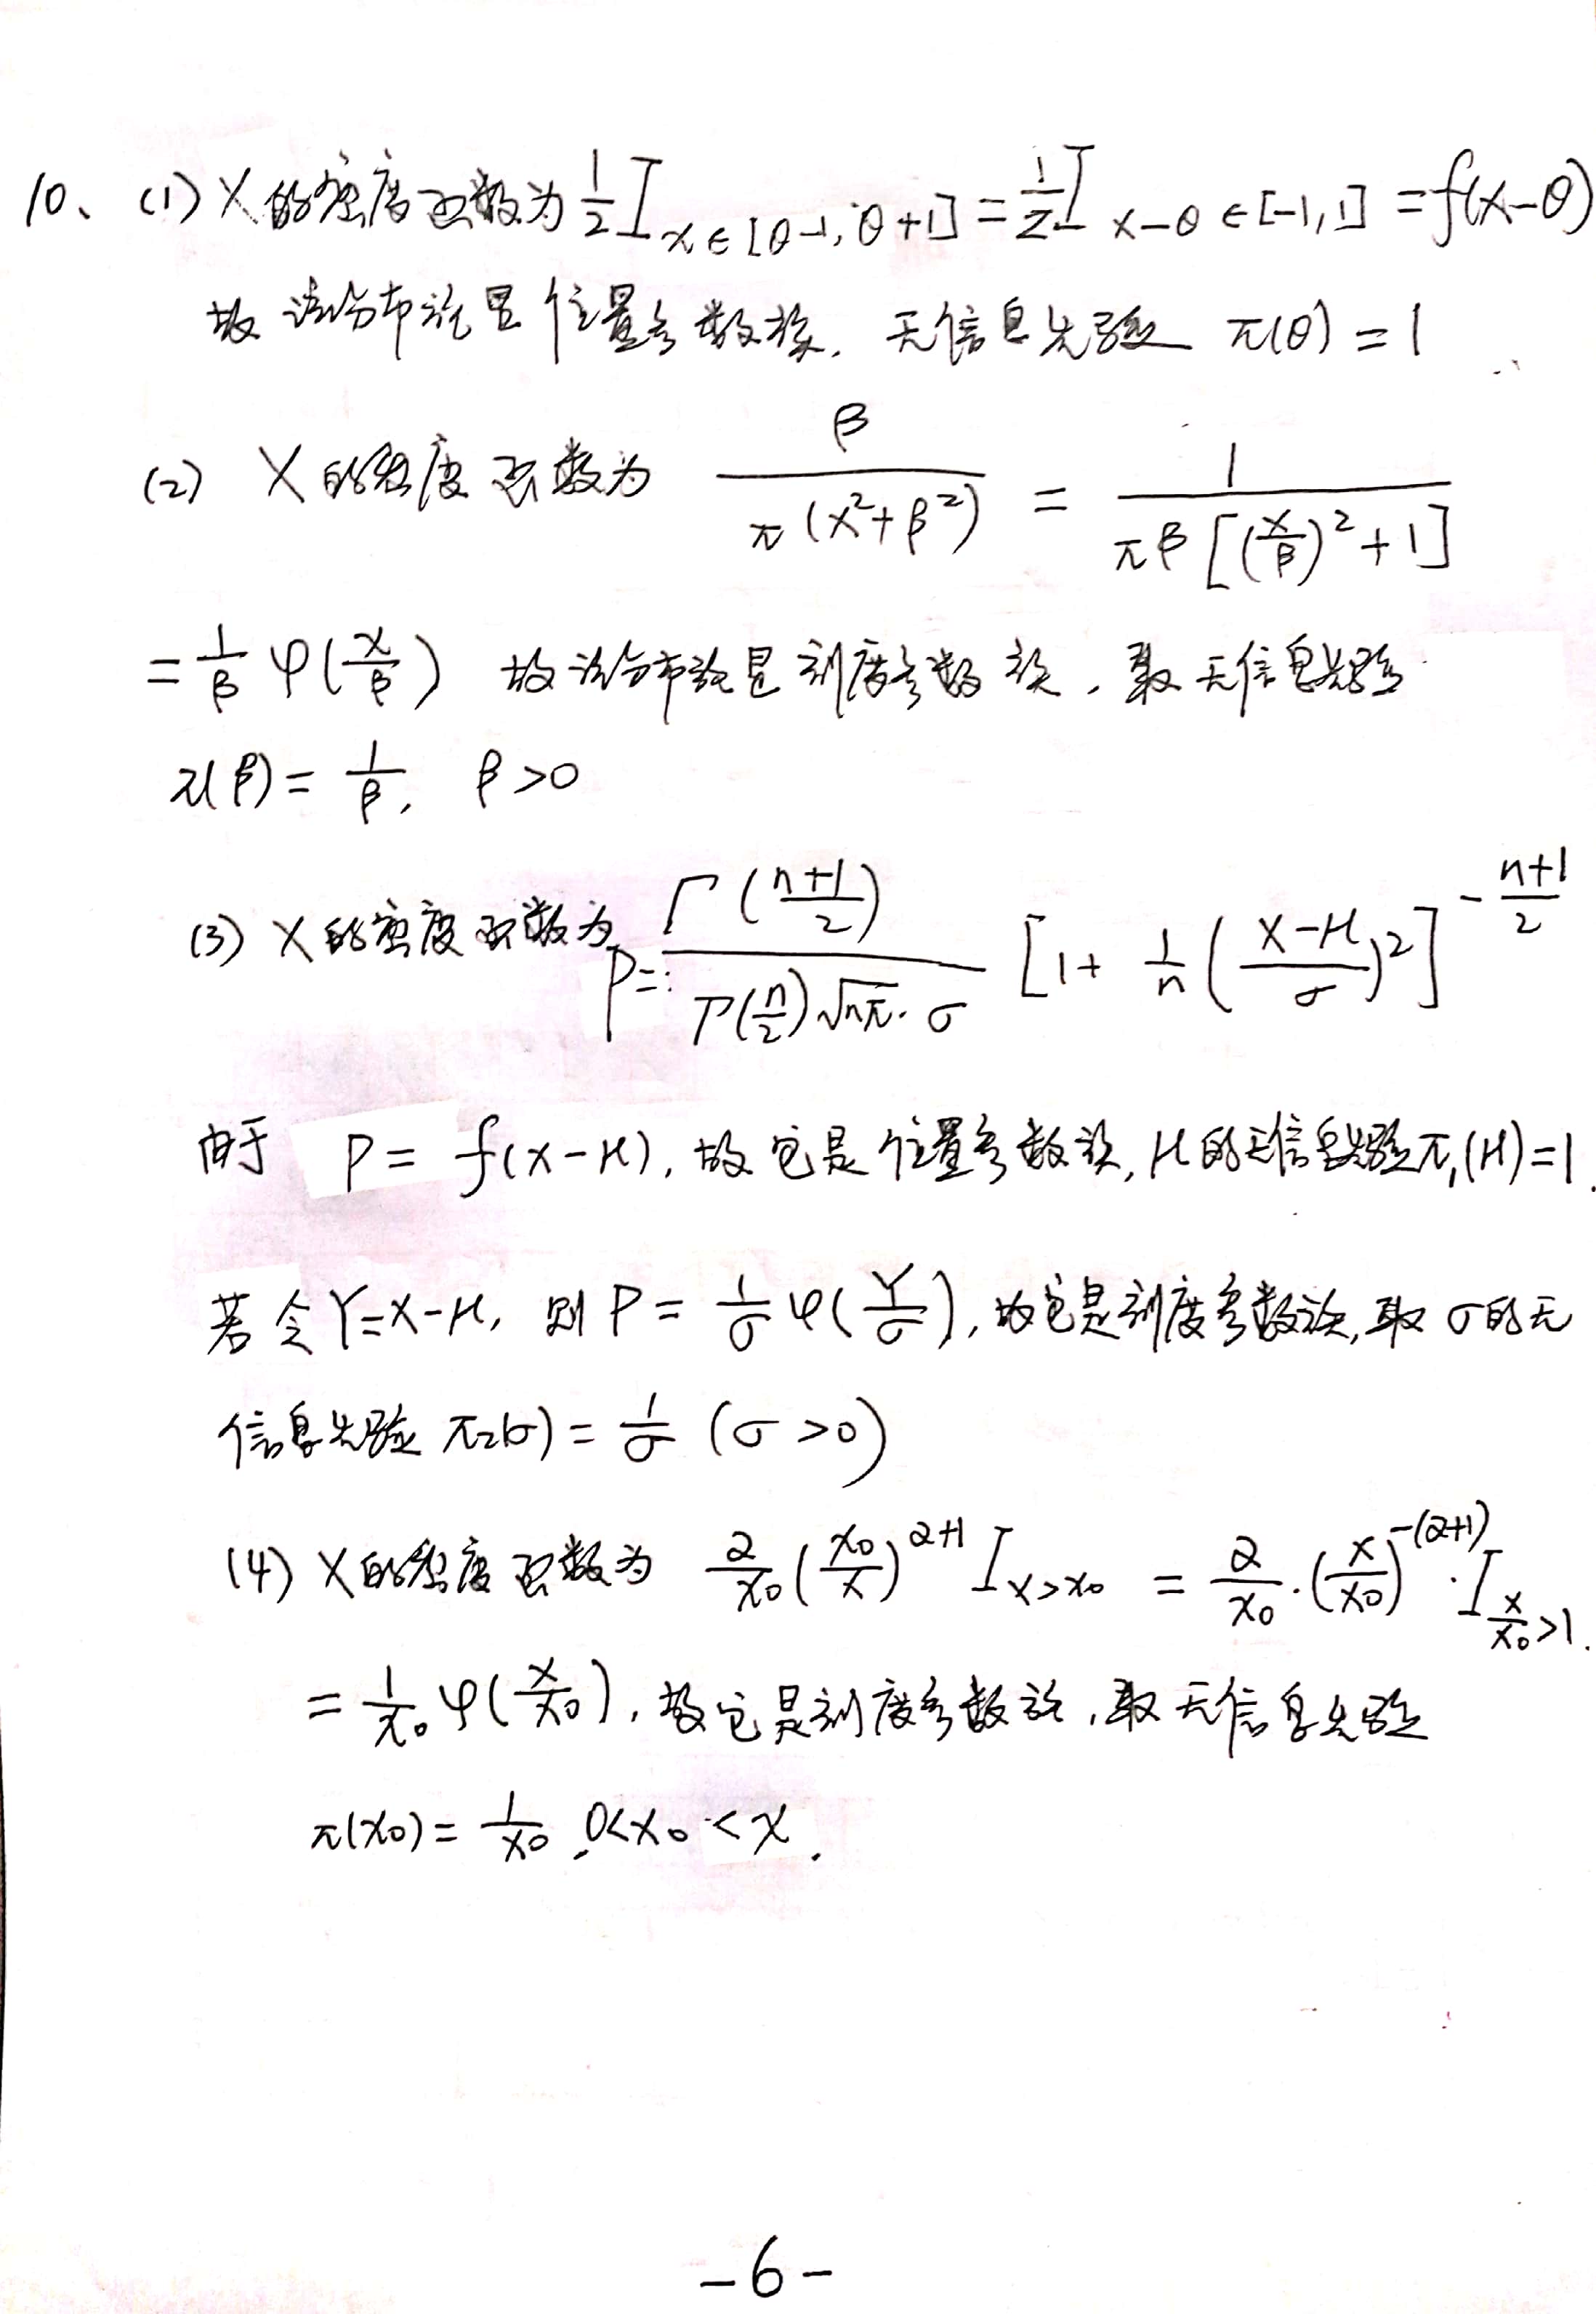 10、(1) X的密度函数为 1/2 I_{x∈[θ-1,θ+1]} = 1/2 I_{x-θ∈[-1,1]} = f(x-θ)
故该分布族是位置参数族. 无信息先验 π(θ) = 1
(2) X的密度函数为 β/(π(x²+β²)) = 1/(πβ[(x/β)²+1])
= 1/β φ(x/β) 故该分布族是刻度参数族, 取无信息先验
π(β) = 1/β, β>0
(3) X的密度函数为 P = Γ((n+1)/2)/(Γ(n/2)√(nπ)·σ) [1+ 1/n ((x-μ)/σ)²]^{-(n+1)/2}
由于 P = f(x-μ), 故它是位置参数族, μ的无信息先验π₁(μ)=1.
若令Y=X-μ, 则 P = 1/σ φ(Y/σ), 故它是刻度参数族, 取σ的无
信息先验 π₂(σ) = 1/σ (σ>0)
(4) X的密度函数为 α/x₀ (x₀/x)^{α+1} I_{x>x₀} = α/x₀ · (x/x₀)^{-(α+1)} · I_{x/x₀>1}.
= 1/x₀ φ(x/x₀), 故它是刻度参数族, 取无信息先验
π(x₀) = 1/x₀, 0<x₀<x.
-6-